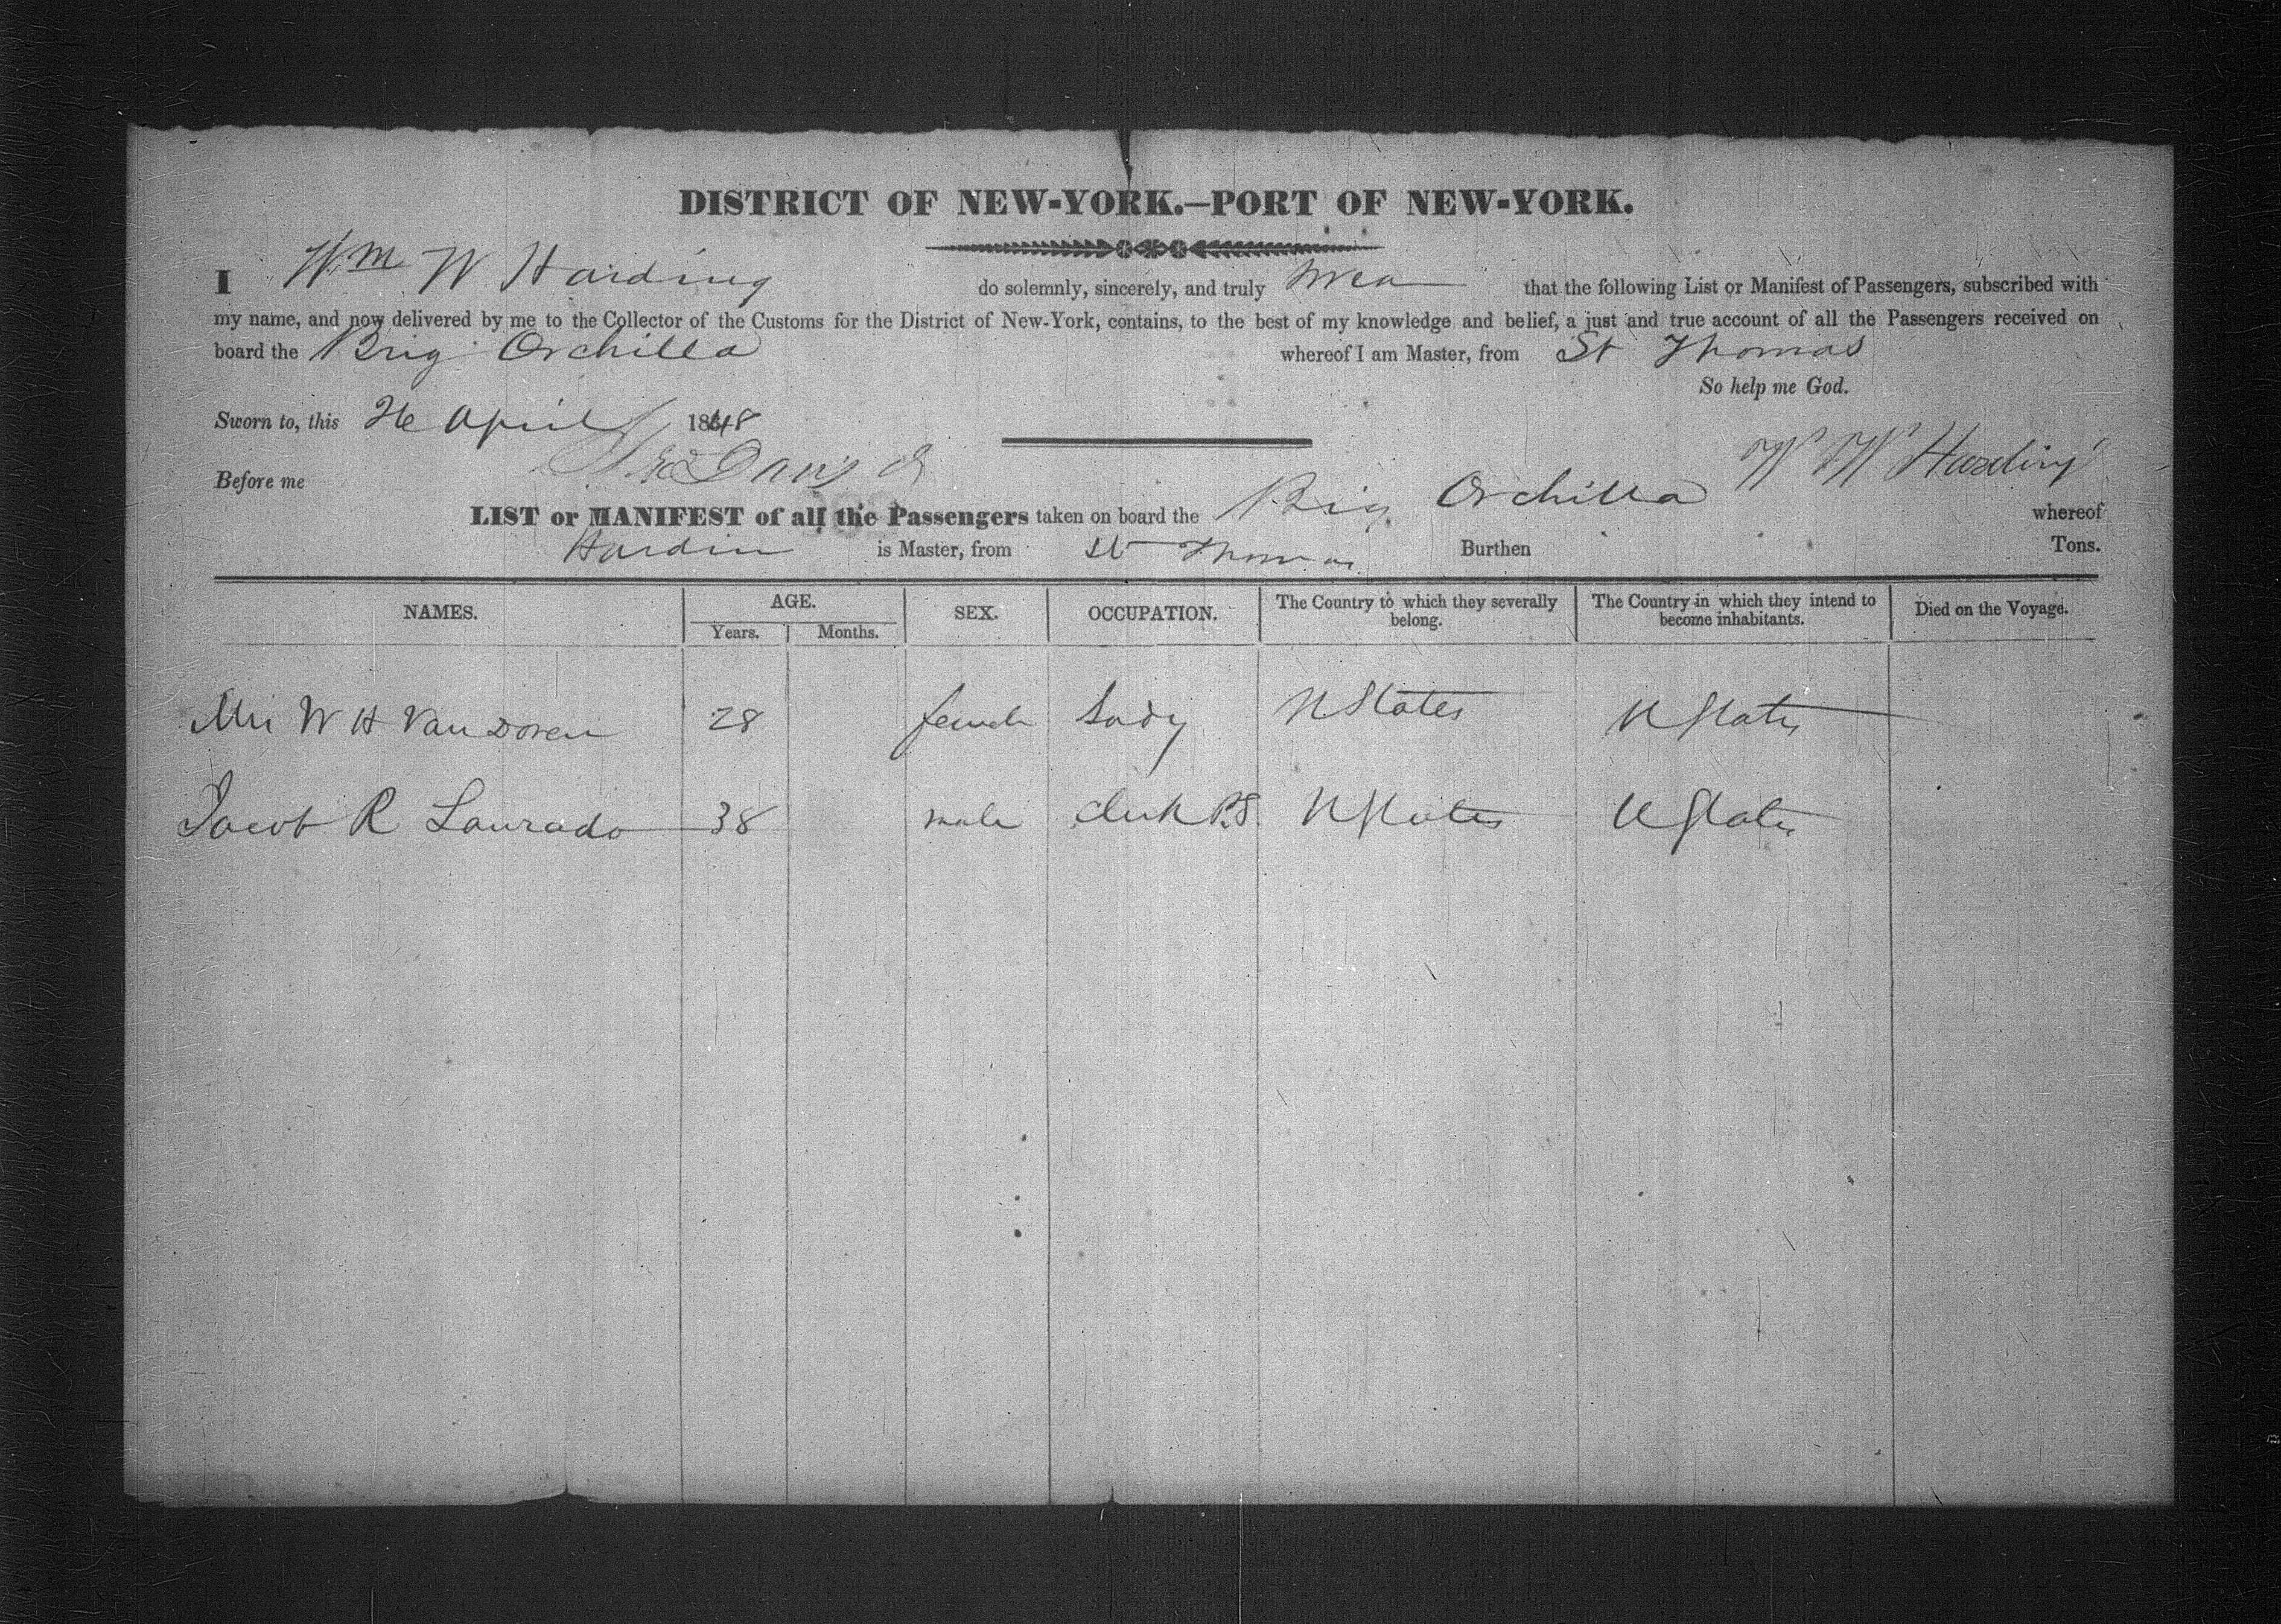 DISTRICT OF NEW-YORK.—PORT OF NEW-YORK.
I Wm W Harding do solemnly, sincerely, and truly that the following List or Manifest of Passengers, subscribed with
my name, and now delivered by me to the Collector of the Customs for the District of New-York, contains, to the best of my knowledge and belief, a just and true account of all the Passengers received on
board the Brig Orchilla whereof I am Master, from St Thomas
So help me God.
Sworn to, this 26 April 1848
W W Harding
Before me
LIST or MANIFEST of all the Passengers taken on board the Brig Orchilla whereof
Hardin is Master, from St Thomas Burthen Tons.
NAMES. AGE. SEX. OCCUPATION. The Country to which they severally belong. The Country in which they intend to become inhabitants. Died on the Voyage.
Years. Months.
W H Van Doren 28 female Lady U States U States
Jacob R Laurado 38 male Clerk U States U States